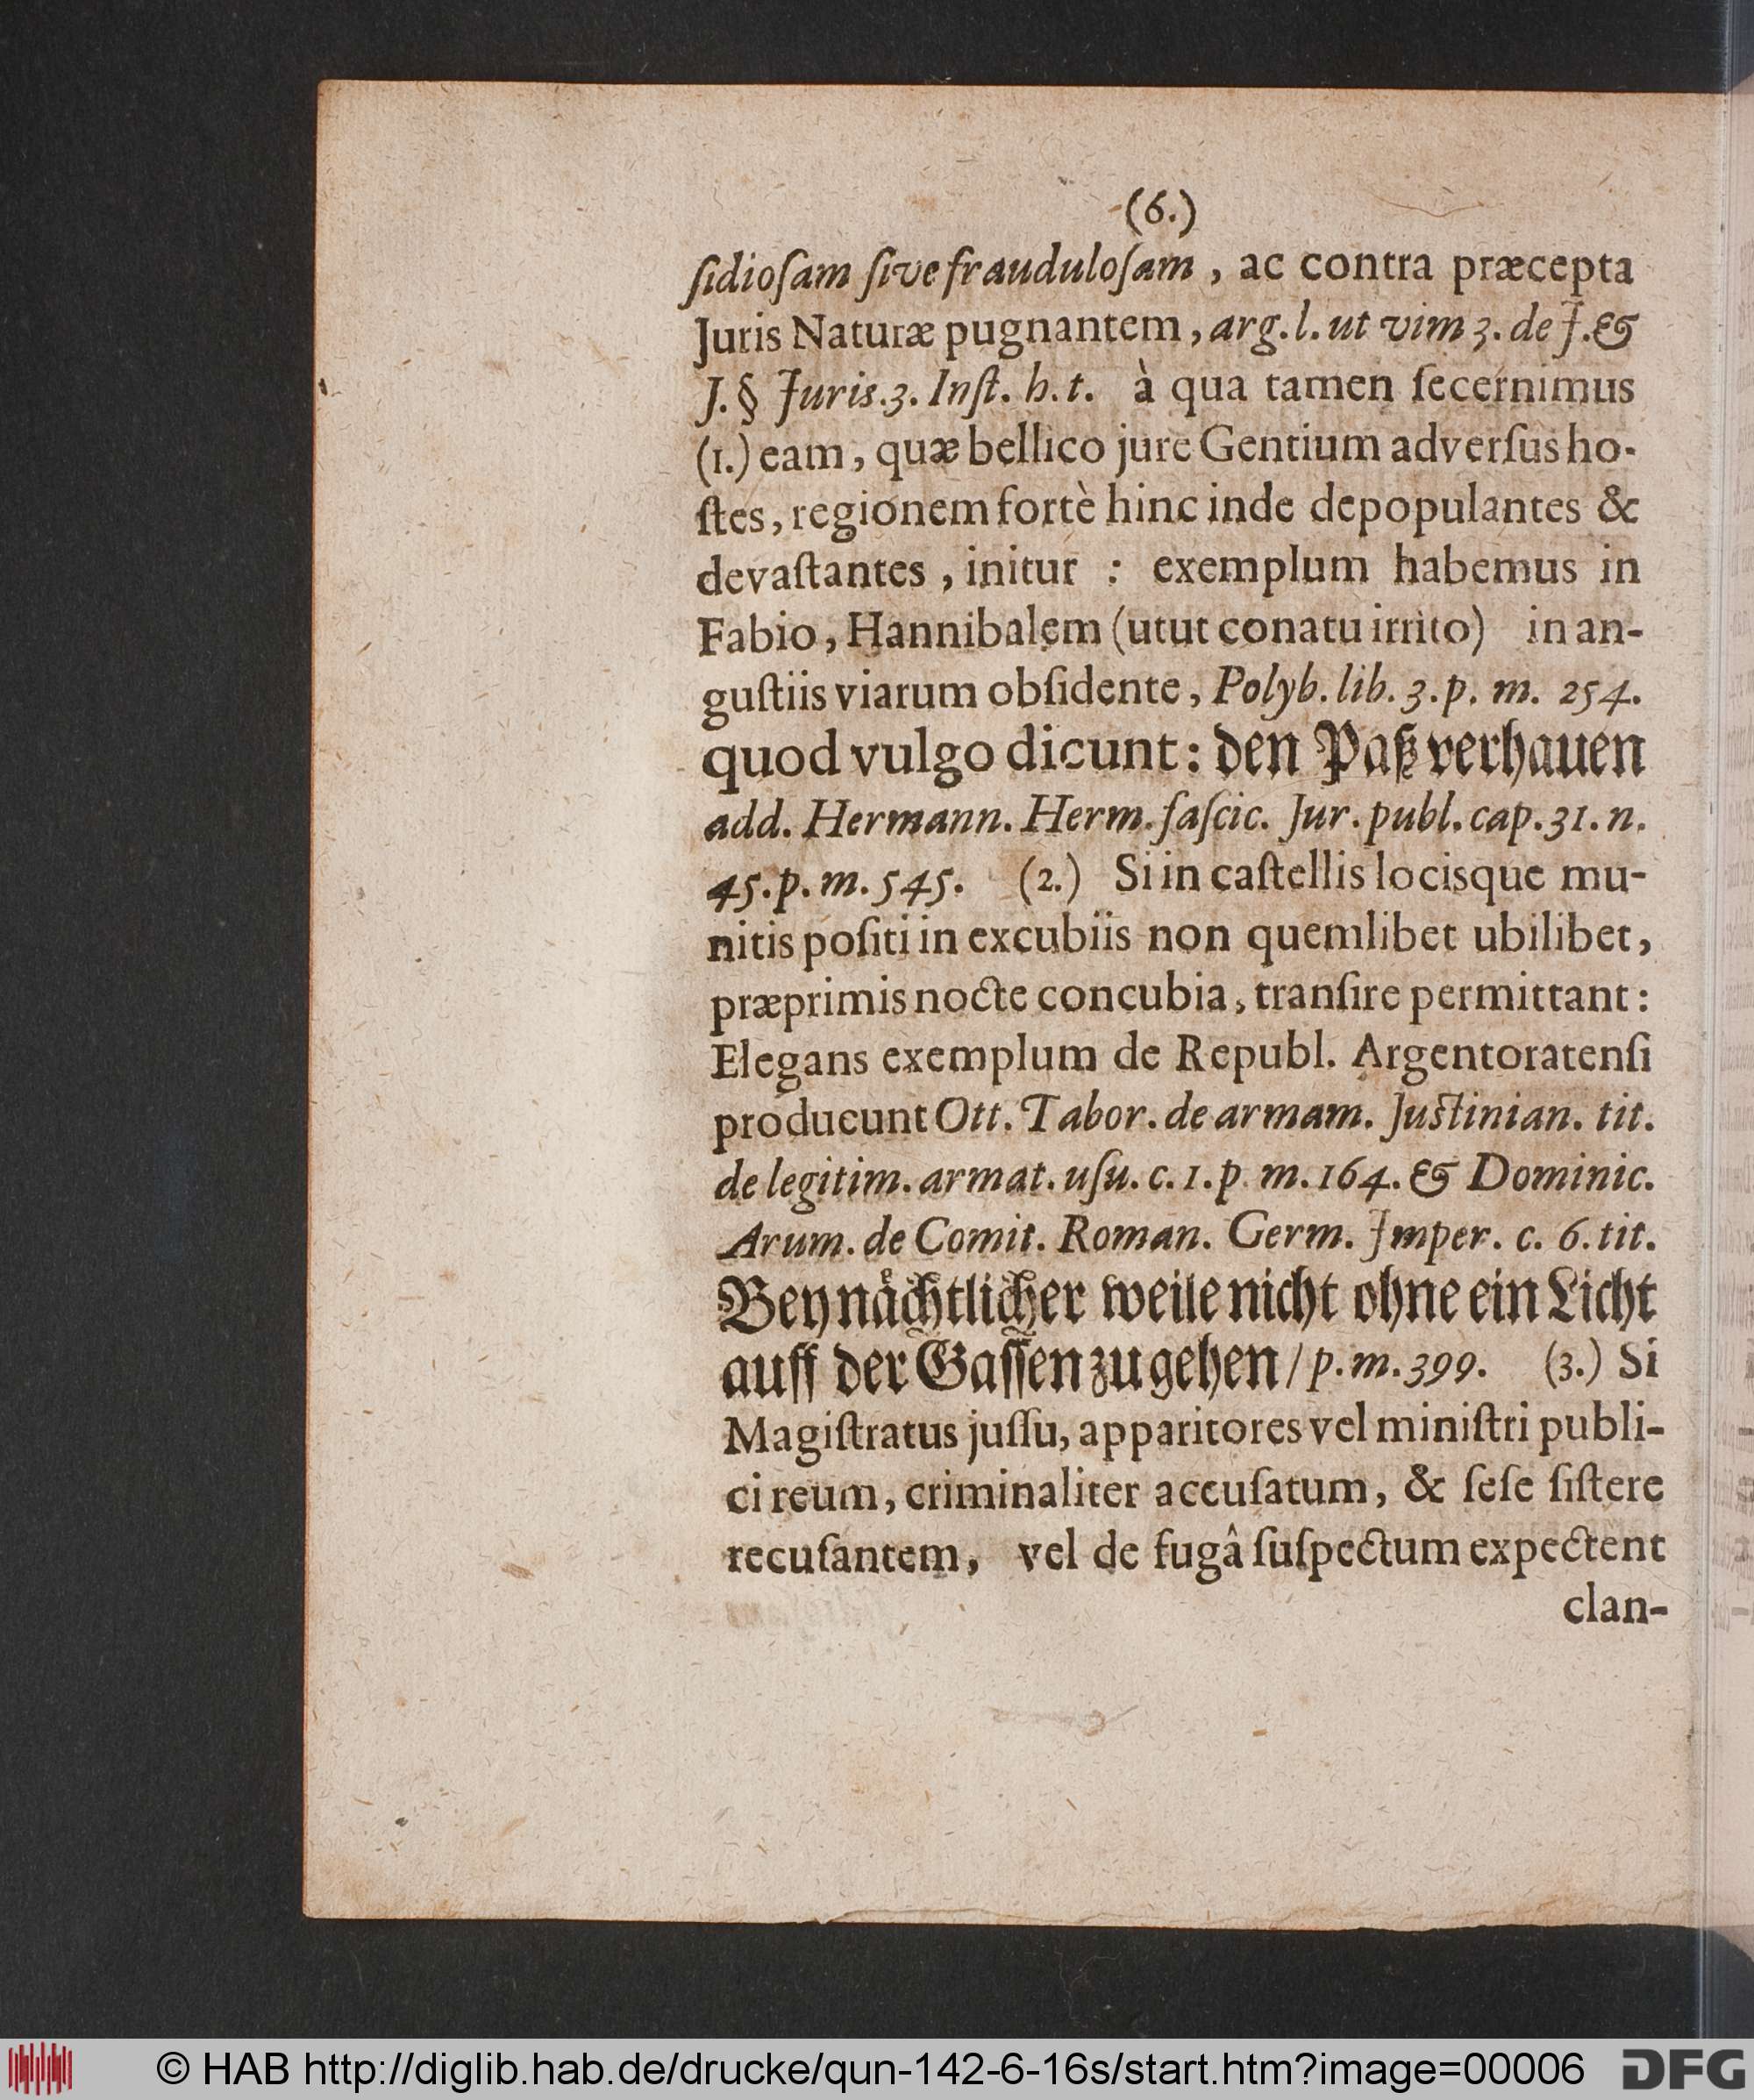 (6.)
ſidioſam ſive frauduloſam , ac contra præcepta
Juris Naturæ pugnantem, arg. l. ut vim 3. de J. &
J. § Juris. 3. Inſt. h. t. à qua tamen ſecernimus
(1.) eam, quæ bellico jure Gentium adverſus ho-
ſtes, regionem fortè hinc inde depopulantes &
devaſtantes , initur : exemplum habemus in
Fabio, Hannibalem (utut conatu irrito) in an-
guſtiis viarum obſidente, Polyb. lib. 3. p. m. 254.
quod vulgo dicunt: den Paß verhauen
add. Hermann. Herm. faſcic. Jur. publ. cap. 31. n.
45. p. m. 545. (2.) Si in caſtellis locisque mu-
nitis poſiti in excubiis non quemlibet ubilibet,
præprimis nocte concubia, tranſire permittant:
Elegans exemplum de Republ. Argentoratenſi
producunt Ott. Tabor. de armam. Juſtinian. tit.
de legitim. armat. uſu. c. 1. p. m. 164. & Dominic.
Arum. de Comit. Roman. Germ. Imper. c. 6. tit.
Bey naͤchtlicher weile nicht ohne ein Licht
auff der Gaſſen zu gehen / p. m. 399. (3.) Si
Magiſtratus juſſu, apparitores vel miniſtri publi-
ci reum, criminaliter accuſatum, & ſeſe ſiſtere
recuſantem, vel de fugâ ſuſpectum expectent
clan-
© HAB http://diglib.hab.de/drucke/qun-142-6-16s/start.htm?image=00006
DFG